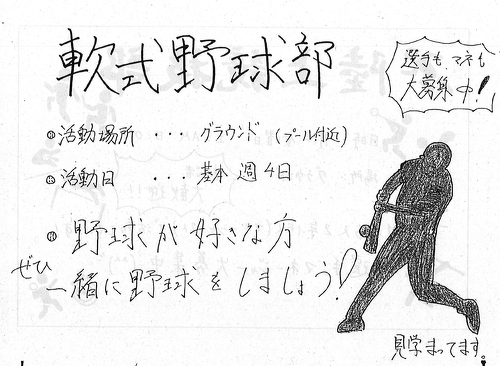 軟式野球部
選手も マネも
大募集中!
活動場所 ・・・ グラウンド (プール付近)
活動日 ・・・ 基本 週4日
野球が好きな方
ぜひ
一緒に野球をしましょう!
見学まってます。